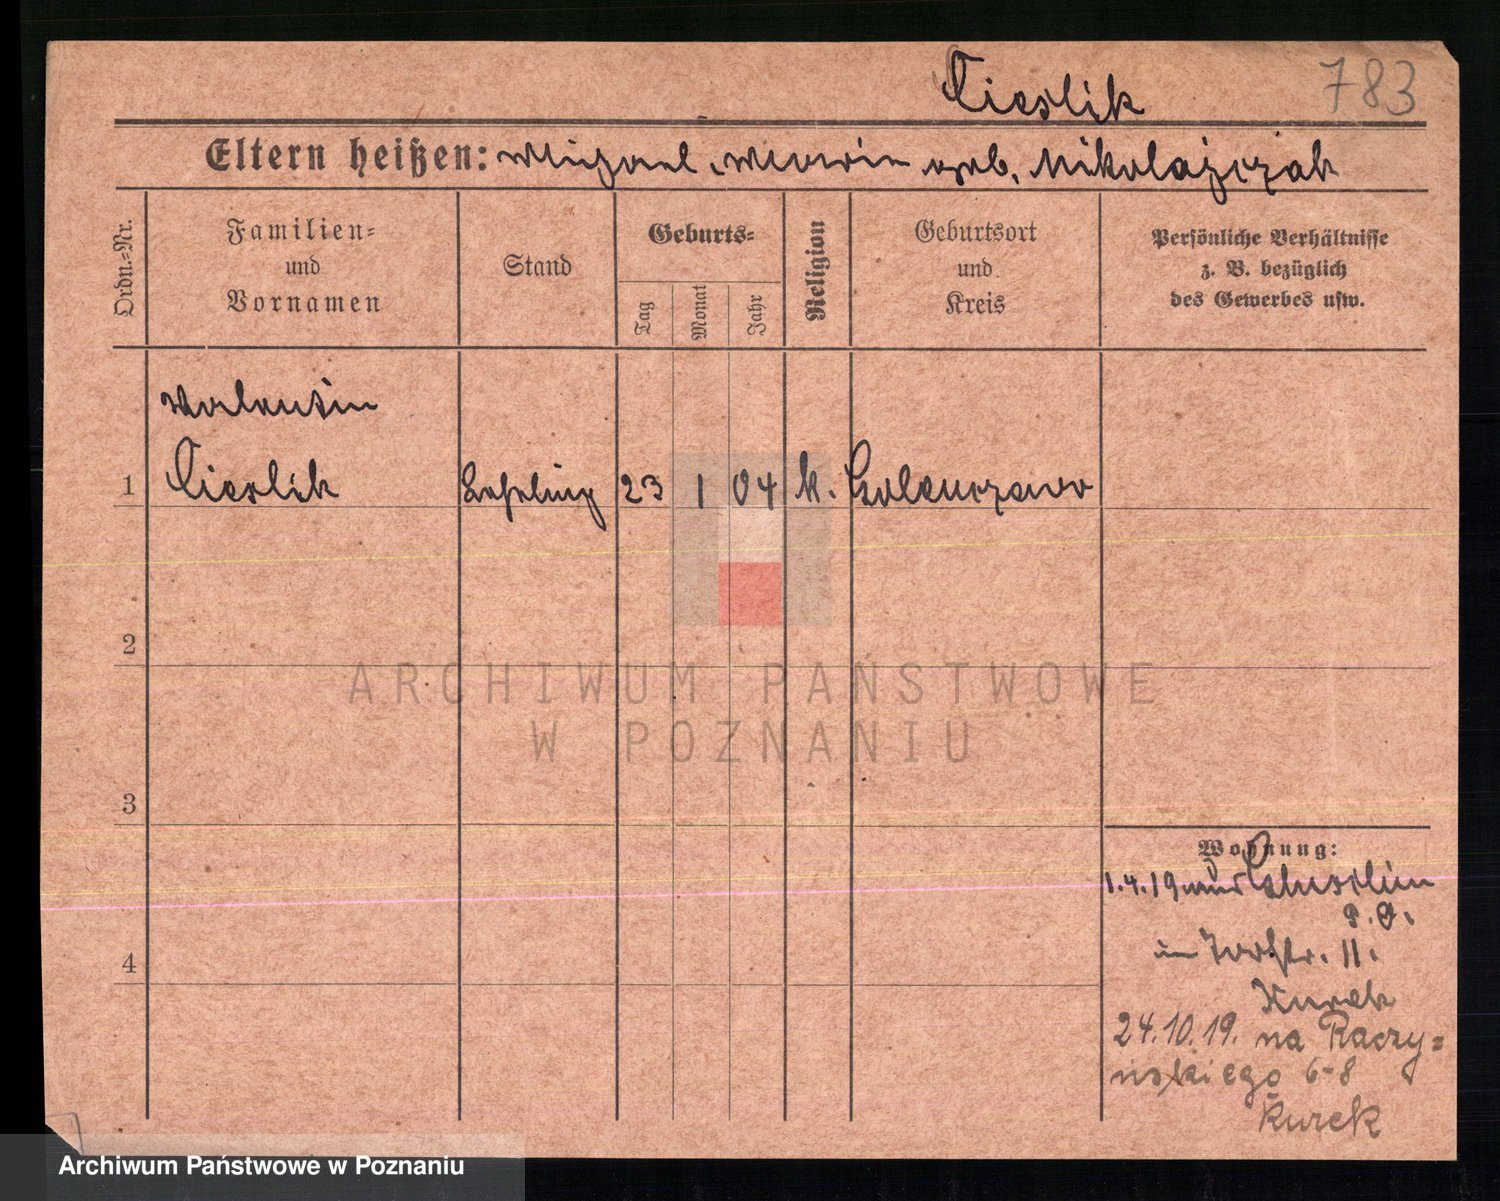 Cieslik 783
Eltern heißen: Michael, Maria geb. Mikolajczak
Ordn.=Nr.
Familien=
und
Vornamen
Stand
Geburts=
Tag
Monat
Jahr
Religion
Geburtsort
und
Kreis
Persönliche Verhältnisse
z. B. bezüglich
des Gewerbes usw.
Valentin
1 Cieslik Lehrling 23 1 04 k. Golenczewo
2
3
4
Wohnung:
1.4.19 aus
P. O.
11.
Kurek
24.10.19. na Raczy=
ńskiego 6-8
Kurek
ARCHIWUM PAŃSTWOWE
W POZNANIU
Archiwum Państwowe w Poznaniu